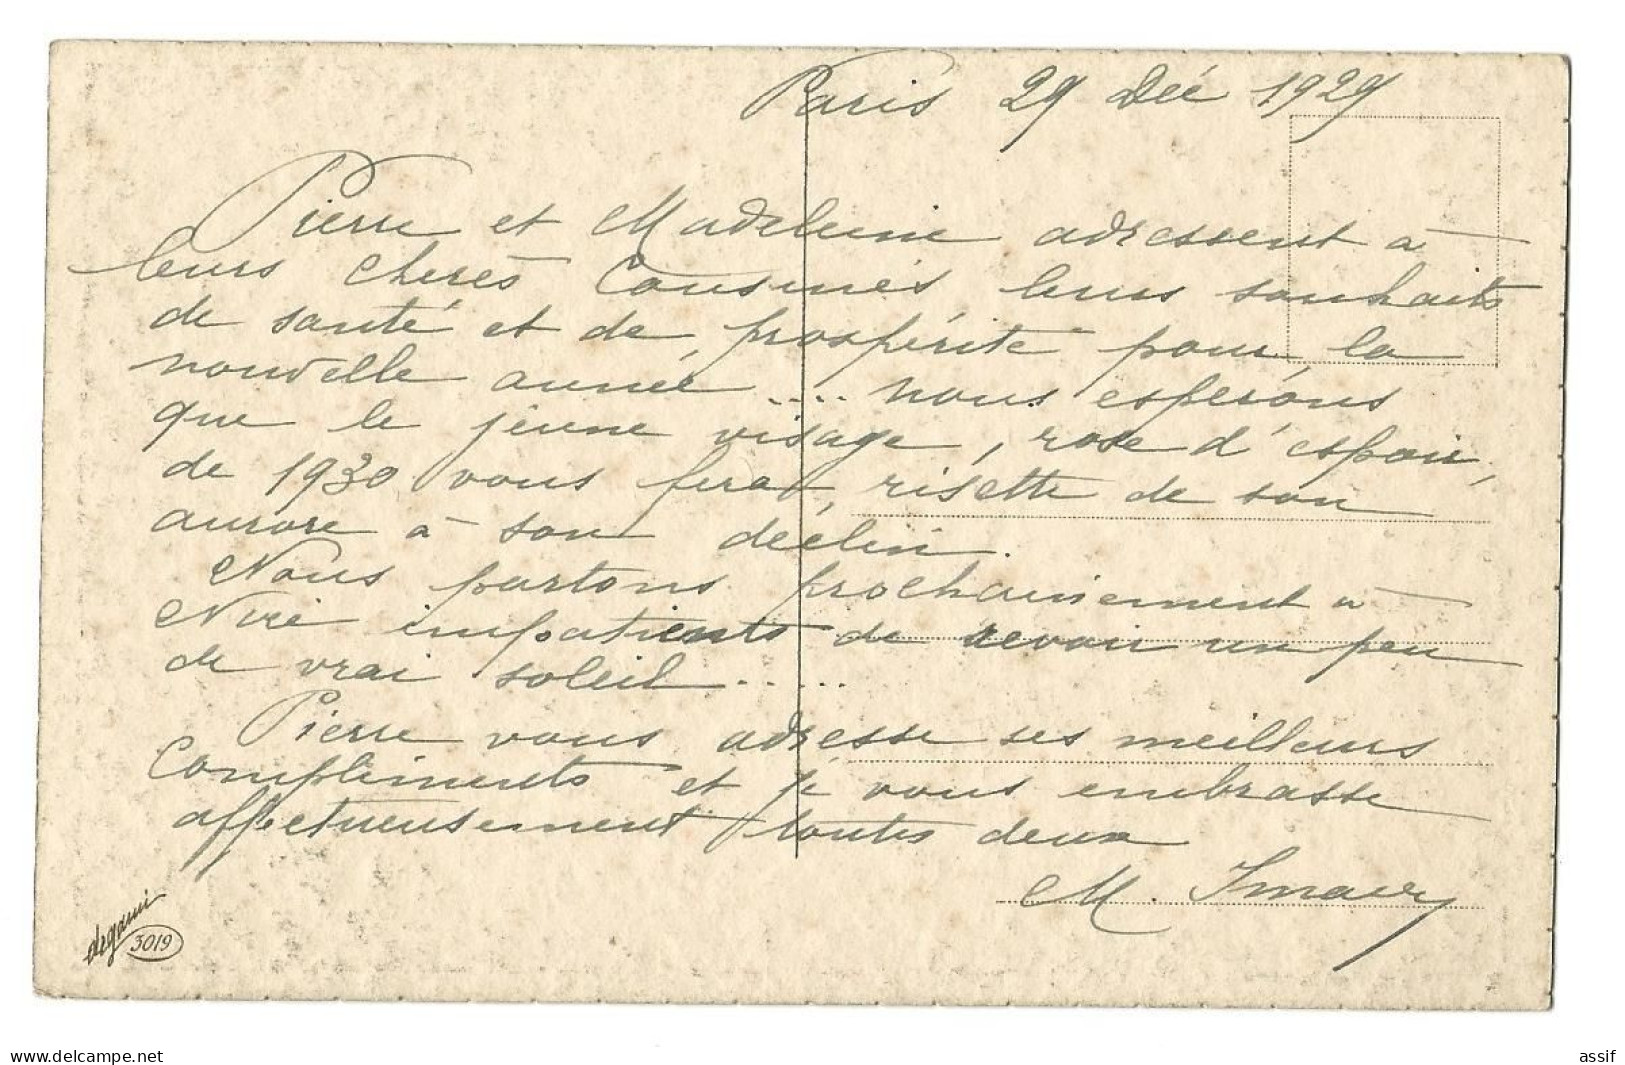 Paris 29 Déc 1929
Pierre et Madeleine adressent à
leurs chères Cousines leurs souhaits
de santé et de prospérité pour la
nouvelle année .... nous espérons
que le jeune visage, rose d'espoir,
de 1930 vous fera risette de son
aurore à son déclin.
Nous partons prochainement à
Nice impatients de revoir un peu
de vrai soleil.....
Pierre vous adresse ses meilleurs
Compliments et je vous embrasse
affectueusement toutes deux
M.
degami
3019
www.delcampe.net
assif